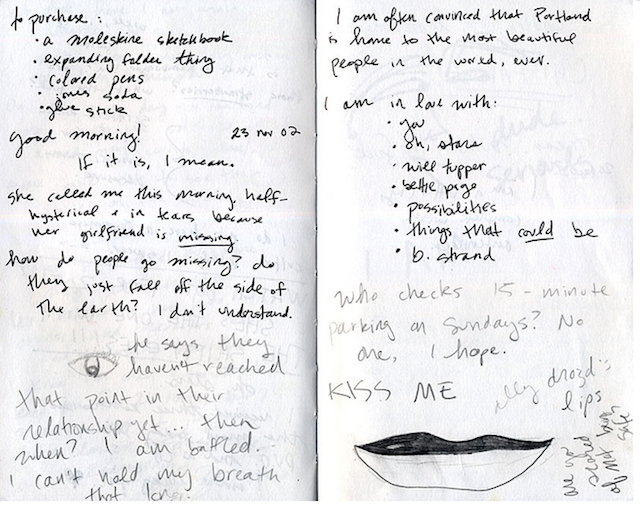 to purchase:
• a moleskine sketchbook
• expanding folder thing
• colored pens
• jones soda
• glue stick
Good morning! 23 nov 02
If it is, I mean.
she called me this morning, half-
hysterical & in tears because
her girlfriend is missing.
how do people go missing? do
they just fall off the side of
the earth? I don't understand.
he says they
haven't reached
that point in their
relationship yet... then
when? I am baffled.
I can't hold my breath
that long.
I am often convinced that Portland
is home to the most beautiful
people in the world, ever.
I am in love with:
• you
• oh, stars
• will tupper
• bettie page
• possibilities
• things that could be
• b. strand
Who checks 15-minute
parking on Sundays? No
one, I hope.
KISS ME
elly drozd's
lips
we're so
scared
of not being
safe